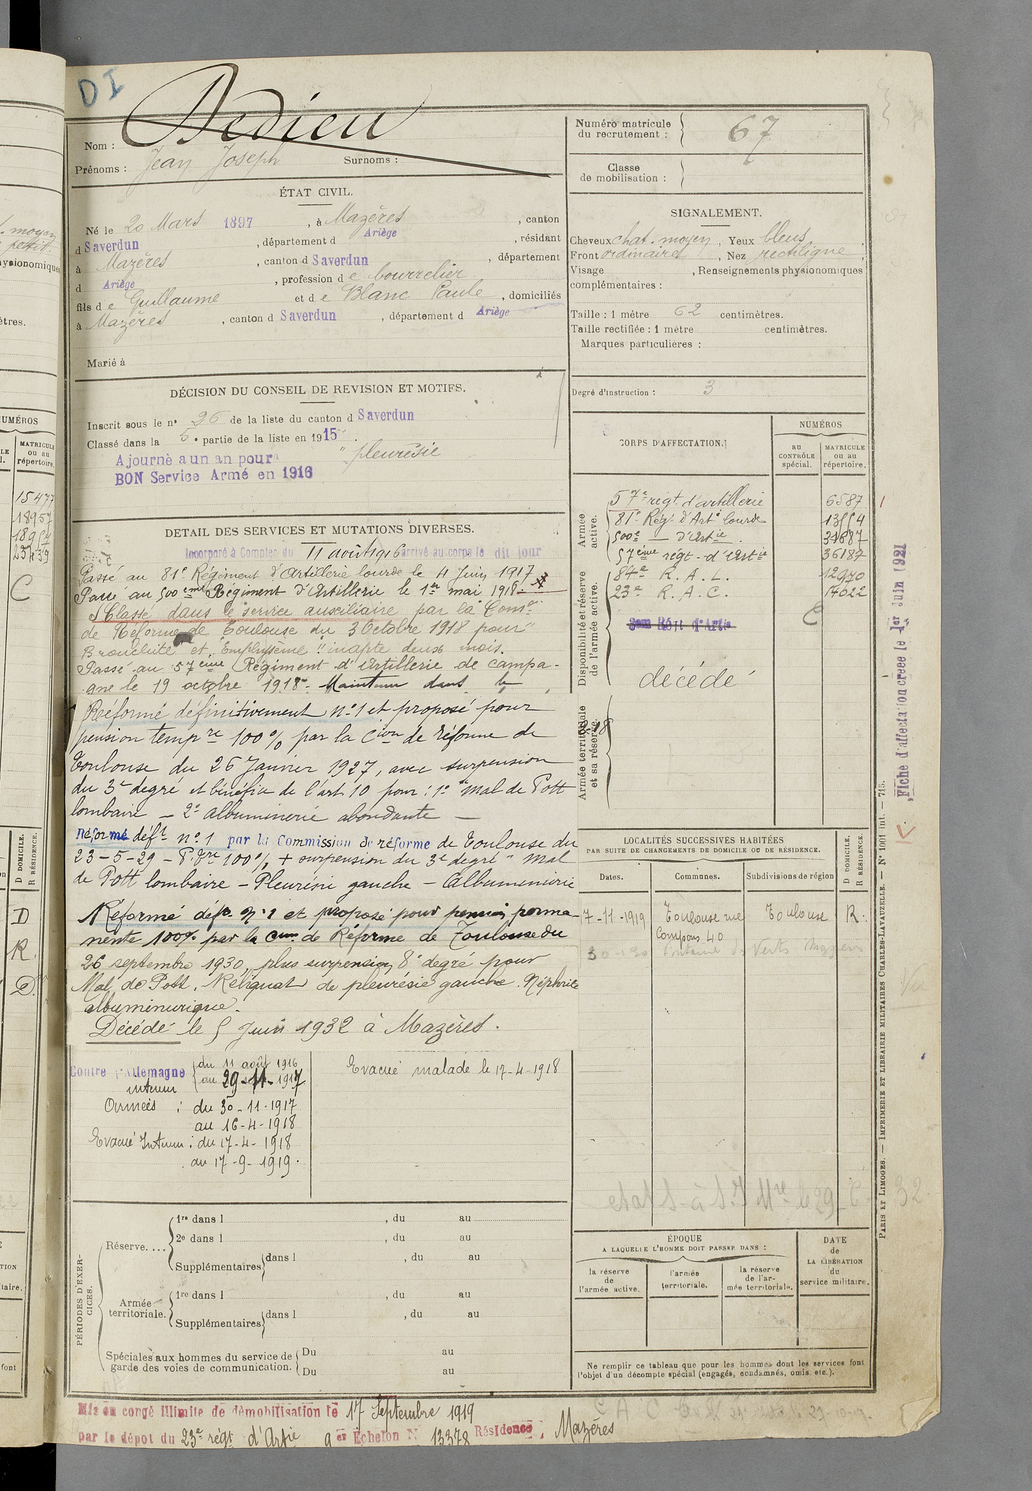 DI
Nom : Dedieu
Prénoms : Jean Joseph Surnoms :
Numéro matricule du recrutement : 67
Classe de mobilisation :
ÉTAT CIVIL.
Né le 20 Mars 1897, à Mazères, canton
d Saverdun, département d Ariège, résidant
à Mazères, canton d Saverdun, département
d Ariège, profession d e bourrelier
fils d e Guillaume et d e Blanc Paule, domiciliés
à Mazères, canton d Saverdun, département d Ariège
Marié à
SIGNALEMENT.
Cheveux chat. moyen, Yeux bleus
Front ordinaire, Nez rectiligne
Visage , Renseignements physionomiques
complémentaires :
Taille : 1 mètre 62 centimètres.
Taille rectifiée : 1 mètre centimètres.
Marques particulières :
Degré d'instruction : 3
DÉCISION DU CONSEIL DE REVISION ET MOTIFS.
Inscrit sous le n° 26 de la liste du canton d Saverdun
Classé dans la 5e partie de la liste en 1915.
Ajourné a un an pour "pleurésie
BON Service Armé en 1916
DÉTAIL DES SERVICES ET MUTATIONS DIVERSES.
Incorporé à Compter du 11 août 1916 arrivé au corps le dit jour
Passé au 81e Régiment d'Artillerie lourde le 4 Juin 1917
Passé au 500ème Régiment d'Artillerie le 1er mai 1918
Classé dans le service auxiliaire par la Comon
de Réforme de Toulouse du 3 Octobre 1918 pour "
Bronchite et Emphysème" inapte deux mois.
Passé au 57ème Régiment d'Artillerie de campa-
gne le 19 octobre 1918. Maintenu dans le
Réformé définitivement n°1 et proposé pour
pension tempre 100% par la Cion de réforme de
Toulouse du 26 Janvier 1927, avec surpension
du 3e degré et bénéfice de l'art. 10 pour : 1° Mal de Pott
lombaire – 2° albuminurie abondante –
Réformé déft n°1 par la Commission de réforme de Toulouse du
23-5-29 – P. Pre 100% + surpension du 3e degré "Mal
de Pott lombaire – Pleurésie gauche – Albuminurie
Réformé défin. N°1 et proposé pour pension perma-
nente 100% par la Cion de Réforme de Toulouse du
26 septembre 1930, plus surpension 8e degré pour
Mal de Pott. Reliquat de pleurésie gauche. Néphrite
albuminurique.
Décédé le 5 Juin 1932 à Mazères.
CORPS D'AFFECTATION.
NUMÉROS
AU CONTRÔLE spécial.
MATRICULE ou au répertoire.
Armée active.
57e regt d'artillerie 6587
81e Rég. d'Artie lourde
500e — d'Artie 31687
57ème régt. d'Artie 36187
Disponibilité et réserve de l'armée active.
84e R.A.L. 12970
23e R.A.C. 17622
décédé
Armée territoriale et sa réserve.
LOCALITÉS SUCCESSIVES HABITÉES
PAR SUITE DE CHANGEMENTS DE DOMICILE OU DE RÉSIDENCE.
Dates. Communes. Subdivisions de région D DOMICILE. R RÉSIDENCE.
7-11-1919 Toulouse rue Toulouse R.
Compans 40
Contre l'Allemagne
du 11 août 1916
au 29-11-1917
intérieur
Armées : du 30-11-1917
au 16-4-1918
Evacué Intérieur : du 17-4-1918
au 17-9-1919.
Evacué malade le 17-4-1918
PÉRIODES D'EXERCICES.
Réserve....
1re dans l , du au
2e dans l , du au
Supplémentaires dans l , du au
Armée territoriale.
1re dans l , du au
Supplémentaires dans l , du au
Spéciales aux hommes du service de garde des voies de communication.
Du au
Du au
ÉPOQUE
A LAQUELLE L'HOMME DOIT PASSER DANS :
la réserve de l'armée active.
l'armée territoriale.
la réserve de l'armée territoriale.
DATE de LA LIBÉRATION du service militaire.
Ne remplir ce tableau que pour les hommes dont les services font
l'objet d'un décompte spécial (engagés, condamnés, omis, etc.).
Mis en congé illimité de démobilisation le 17 Septembre 1919
par le dépôt du 23e régt d'Artie 9er Echelon N° 13378 Résidence, Mazères
Fiche d'affectation créée le 1er Juin 1921
PARIS ET LIMOGES. — IMPRIMERIE ET LIBRAIRIE MILITAIRES CHARLES-LAVAUZELLE. — N° 1001 int. — 715.
NUMÉROS
MATRICULE ou au répertoire.
15477
18957
C
D
R.
D